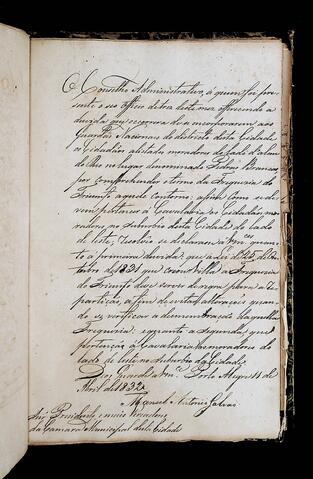 O Conselho Administrativo, a quem foi pre
sente o seo officio de tres deste mez offerecendo a
duvida que occorre de a incorporarem aos
Guardas Nacionaes do destricto desta Cidade
os Cidadãos alistados moradores do lado d'alem
do Rio no lugar denominado Pedras Brancas,
por comprehender o termo da Freguezia do
Triumfo aquele contorno; assim como se de
vem pertencer á Cavalaria os Cidadãos mo
radores no Suburbio desta Cidade do lado
de leste; resolveo se declarasse a Vm. quan
to á primeira duvida, que a Lei de 25 de Ou
tubro de 1831 que creou a Villa a Freguezia
do Triumfo deve servir de regra para a re
partição, a fim de evitar alterações quan
do se verificar a desmembração daquella
Freguezia; e quanto a segunda, que
pertencem á Cavalaria os moradores do
lado de leste no Suburbio da Cidade.
Deos Guarde a Vm. Porto Alegre 11 de
Abril de 1832
Manoel Antonio Galvão
Snr. Prezidente e mais Vereadores
da Camara Municipal desta Cidade